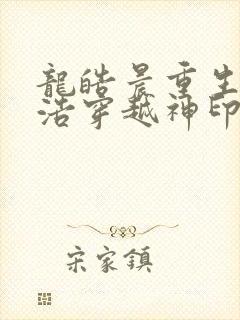 龍皓晨重生
浩穿越神印
宋家鎮